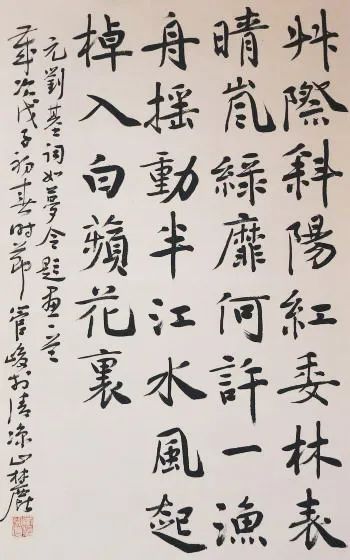 艸際斜陽紅委林表
晴嵐綠靡何許一漁
舟摇動半江水風起
棹入白蘋花裏
元劉基詞如夢令題畫一首
歲次戊子初春時節管峻於清涼山林麓